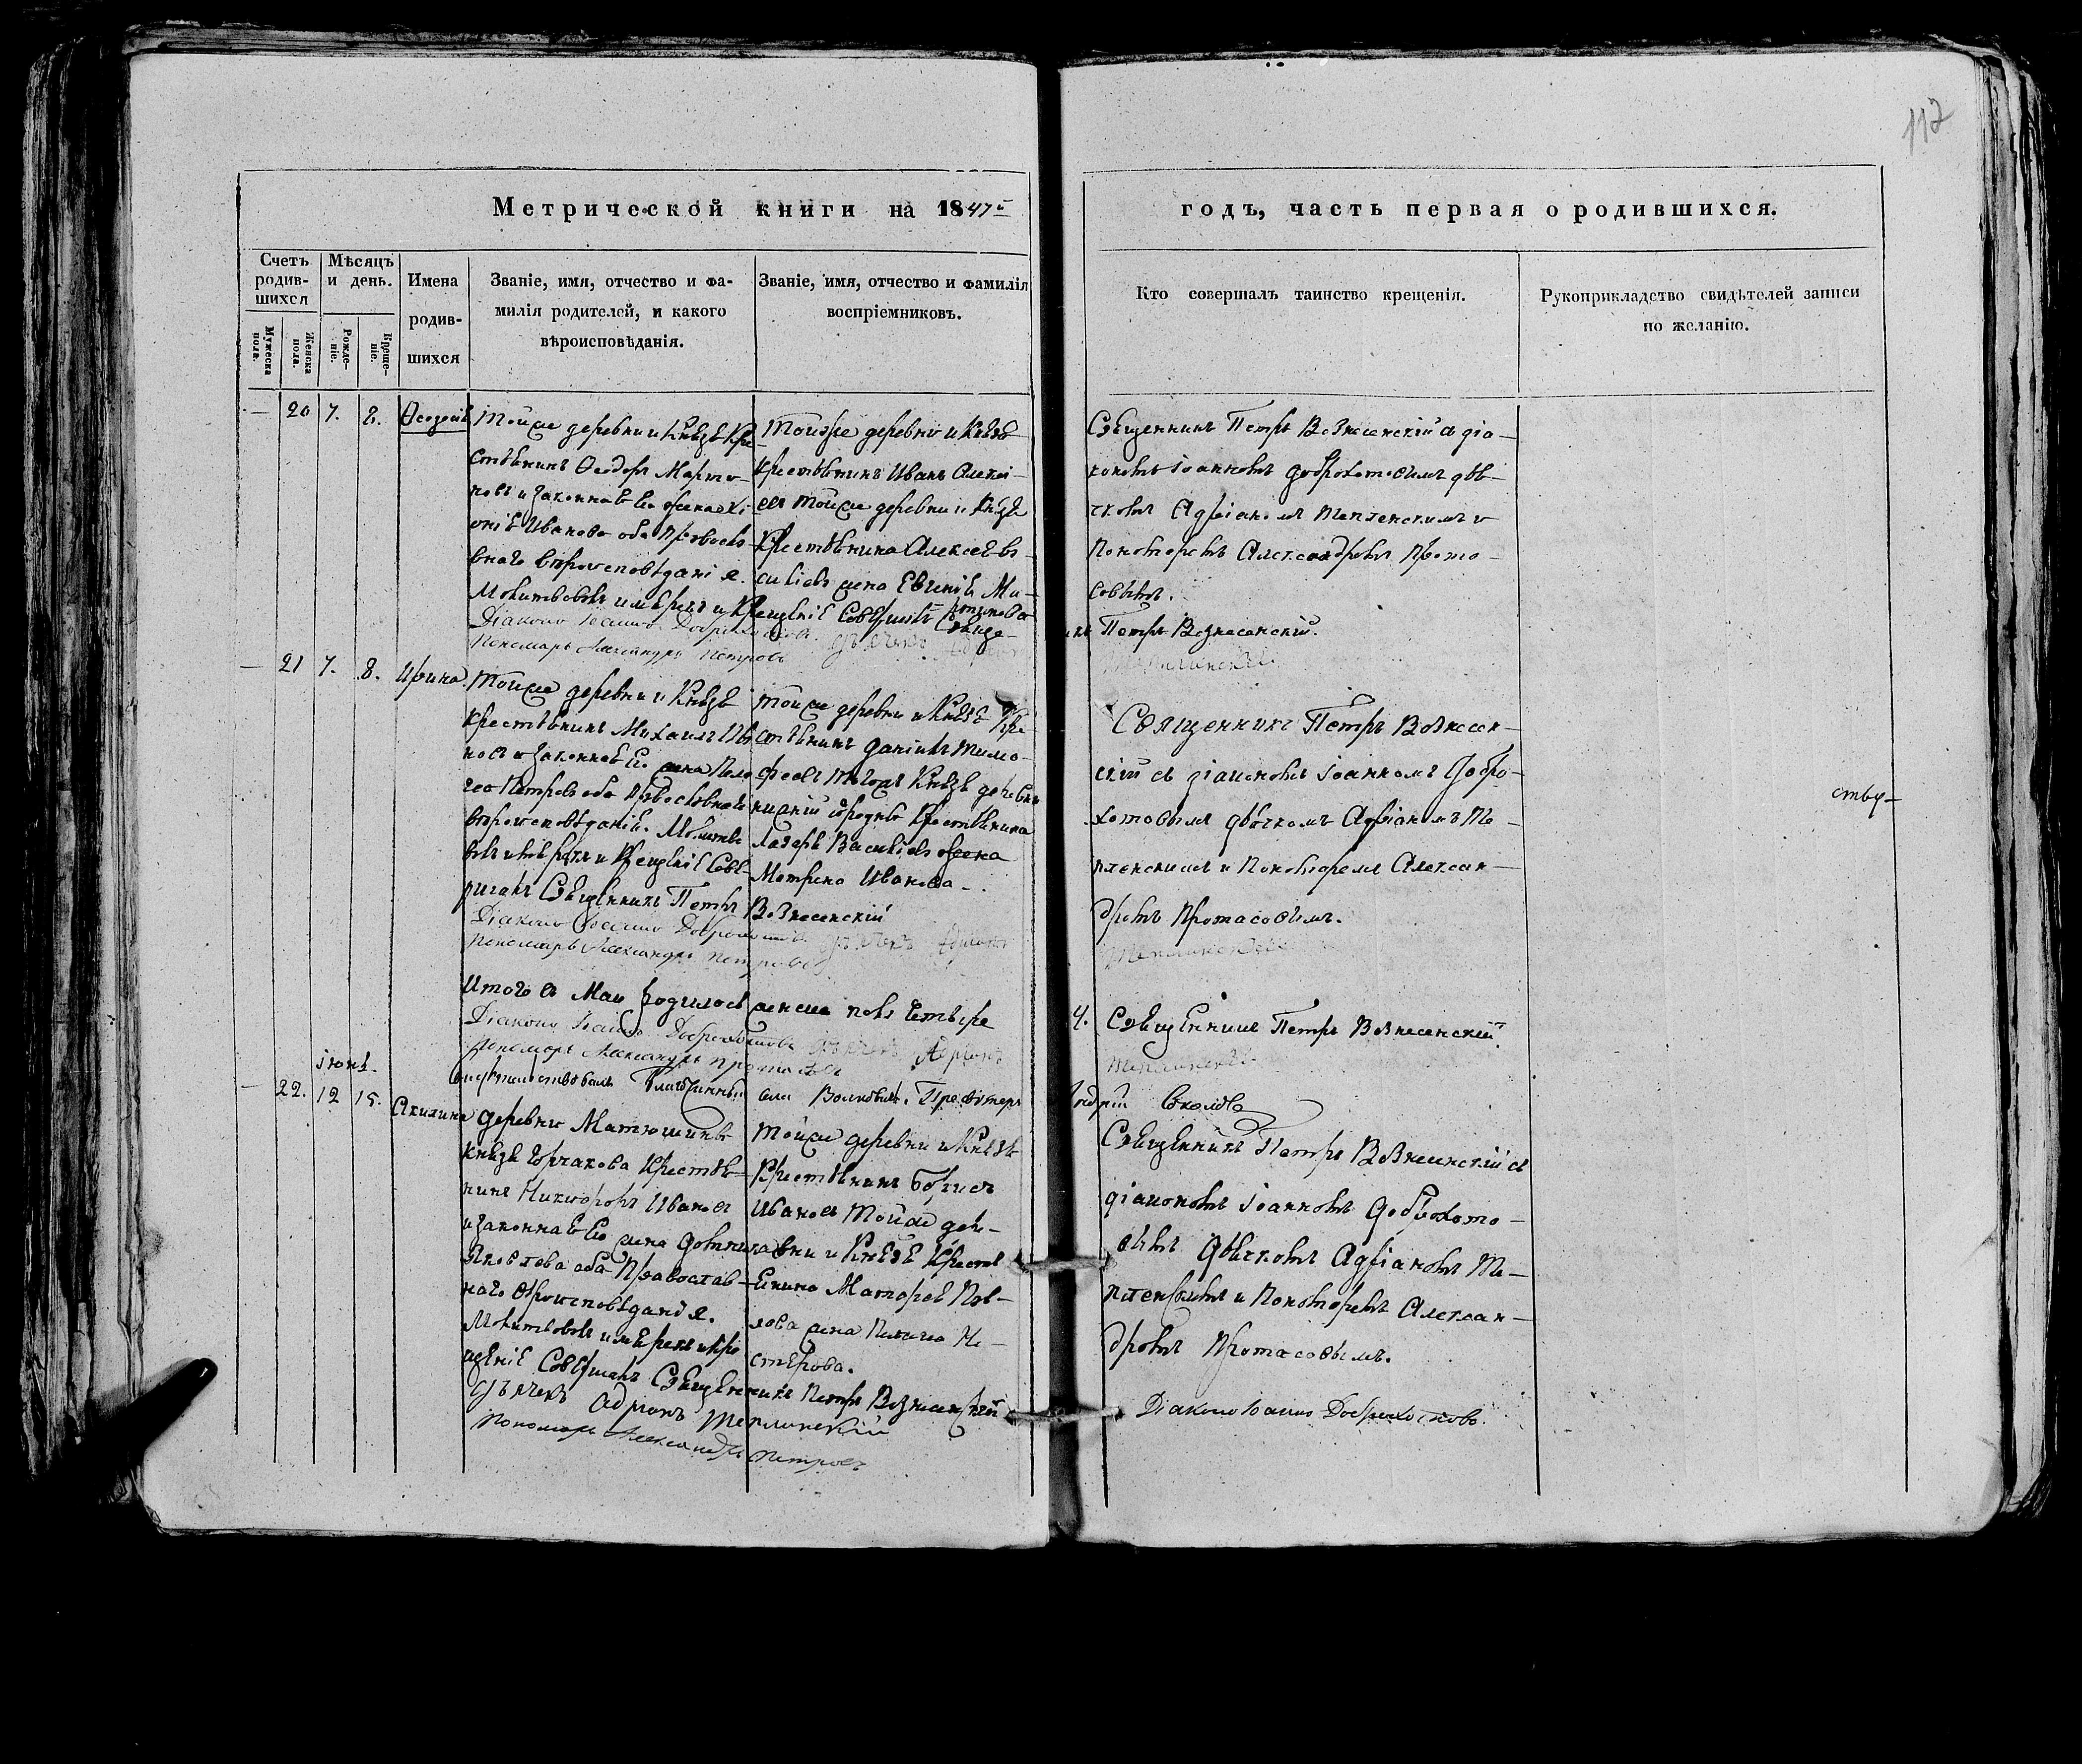 112
Метрической книги на 1847й
годъ, часть первая о родившихся.
Счетъ родив-шихся
Мужеска пола.
Женска пола.
Мѣсяцъ и день.
Рожде-ніе.
Креще-ніе.
Имена родив-шихся
Званіе, имя, отчество и фа-
милія родителей, и какого
вѣроисповѣданія.
Званіе, имя, отчество и фамилія
воспріемниковъ.
Кто совершалъ таинство крещенія.
Рукоприкладство свидѣтелей записи
по желанію.
— 20 7. 8.
Тойже деревни и Князя Кре-
стьянинъ Феодоръ Марты-
новъ и законная Его жена
Иванова оба Православ-
наго вѣроисповѣданія.
Молитвовалъ имя нарекъ и Крещеніе Совершалъ Священ-
Діаконъ Іоаннъ Доброхотовъ
Пономарь Александръ Петровъ
Тойже деревни и Князя
Крестьянинъ Иванъ Алексі-
евъ тойже деревни и Князя
Крестьянина Алексея Ва-
силіева жена Евгенія Ми-
Священникъ Петръ Вознесенскій съ діа-
кономъ Іоанномъ Доброхотовымъ дья-
чкомъ Адріаномъ Теплинскимъ и
Пономаремъ Александромъ Прото-
совымъ.
никъ Петръ Вознесенскій.
— 21 7. 8. Ирина.
Тойже деревни и Князя
крестьянинъ Михаилъ Ива-
новъ и законная Его жена Пела-
гея Петрова оба Православнаго
вѣроисповѣданія. Молитво-
валъ имя нарекъ и Крещеніе Сове-
ршалъ Священникъ Петръ Вознесенскій
Діаконъ Іоаннъ Доброхотовъ
Пономарь Александръ Петровъ
тойже деревни и Князя Кре-
стьянинъ Даніилъ Тимо-
феевъ
Крестьянина
Лазаря Васильева жена
Матрена Иванова.
Священникъ Петръ Вознесен-
скій съ діакономъ Іоанномъ Добро-
хотовымъ дьячкомъ Адріаномъ Те-
плинскимъ и Пономаремъ Алексан-
дромъ Протасовымъ.
ству-
Итого въ Маи родилось женска пола Четыре
4. Священникъ Петръ Вознесенскій.
Діаконъ Іоаннъ Доброхотовъ дьячекъ Адріанъ
Пономарь Александръ Протасовъ
Іюнь.
Благочинный села Волковыхъ. Пресвитеръ
Соколовъ
— 22. 12 15. Акилина
Деревни Матюшина
Князя Горчакова Крестья-
нинъ Никифоръ Ивановъ
и законная Его жена Домника
Яковлева оба Православ-
наго вѣроисповѣданія.
Молитвовалъ имя нарекъ и Кре-
щеніе Совершалъ Священникъ Петръ Вознесенскій
дьячекъ Адріанъ Теплинскій
Пономарь Александръ Петровъ
Тойже деревни и Князя
Крестьянинъ Борисъ
Ивановъ Тойже дере-
вни и Князя Кресть-
янина
жена Пелагеа Не-
стерова.
Священникъ Петръ Вознесенскій съ
діакономъ Іоанномъ Доброхото-
вымъ дьячкомъ Адріаномъ Те-
плинскимъ и Пономаремъ Алексан-
дромъ Протасовымъ.
Діаконъ Іоаннъ Доброхотовъ.